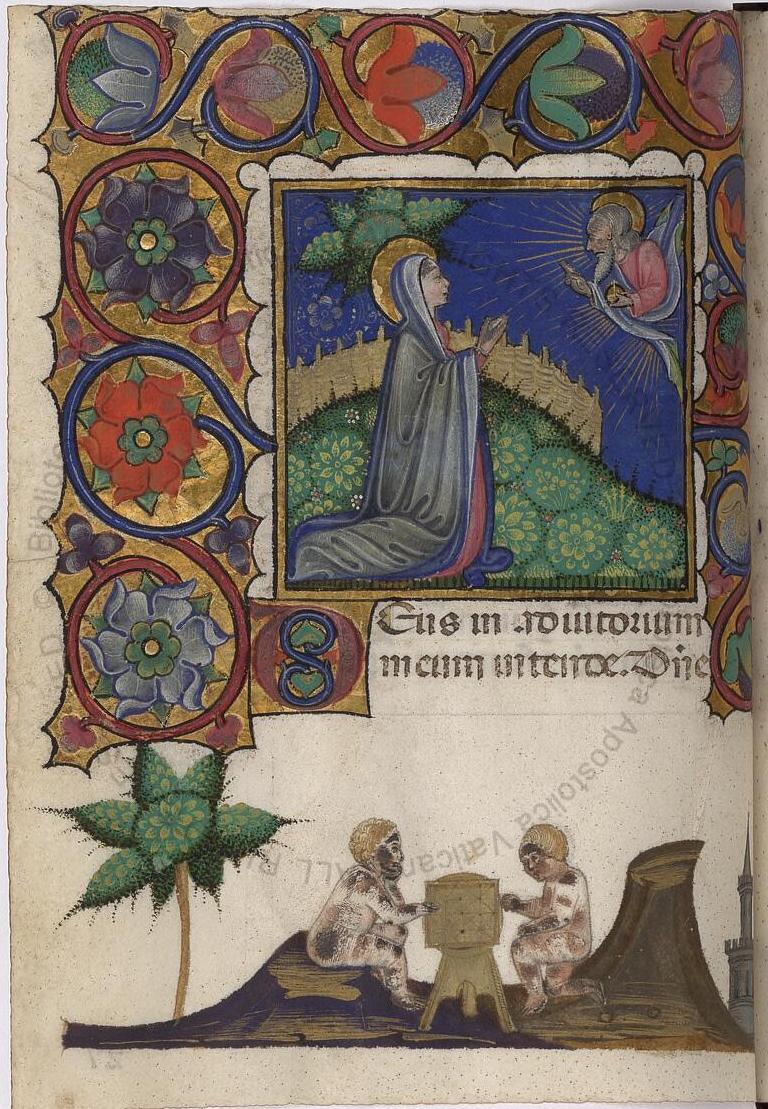 DEus in adiutorium
meum intende. Dñe
Apostolica Vatican